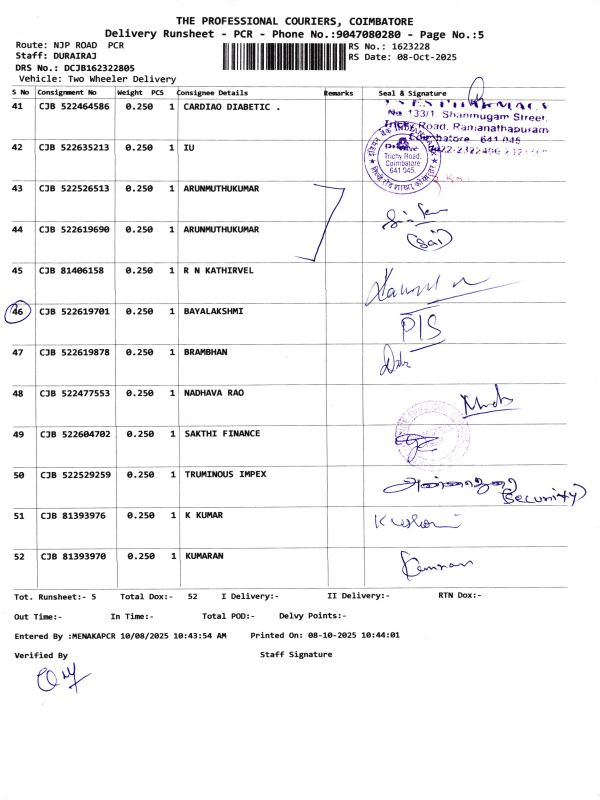 THE PROFESSIONAL COURIERS, COIMBATORE
Delivery Runsheet - PCR - Phone No.:9047080280 - Page No.:5
Route: NJP ROAD PCR
RS No.: 1623228
Staff: DURAIRAJ
RS Date: 08-Oct-2025
DRS No.: DCJB162322805
Vehicle: Two Wheeler Delivery
S No Consignment No Weight PCS Consignee Details Remarks Seal & Signature
41 CJB 522464586 0.250 1 CARDIAO DIABETIC .
No 133/1, Shanmugam Street,
Trichy Road, Ramanathapuram
Coimbatore 641 045
42 CJB 522635213 0.250 1 IU
INDIAN BANK
Trichy Road,
Coimbatore
641 045.
43 CJB 522526513 0.250 1 ARUNMUTHUKUMAR
44 CJB 522619690 0.250 1 ARUNMUTHUKUMAR
(Sai)
45 CJB 81406158 0.250 1 R N KATHIRVEL
46 CJB 522619701 0.250 1 BAYALAKSHMI
P/S
47 CJB 522619878 0.250 1 BRAMBHAN
48 CJB 522477553 0.250 1 NADHAVA RAO
49 CJB 522604702 0.250 1 SAKTHI FINANCE
50 CJB 522529259 0.250 1 TRUMINOUS IMPEX
(Security)
51 CJB 81393976 0.250 1 K KUMAR
52 CJB 81393970 0.250 1 KUMARAN
Tot. Runsheet:- 5 Total Dox:- 52 I Delivery:- II Delivery:- RTN Dox:-
Out Time:- In Time:- Total POD:- Delvy Points:-
Entered By :MENAKAPCR 10/08/2025 10:43:54 AM Printed On: 08-10-2025 10:44:01
Verified By Staff Signature